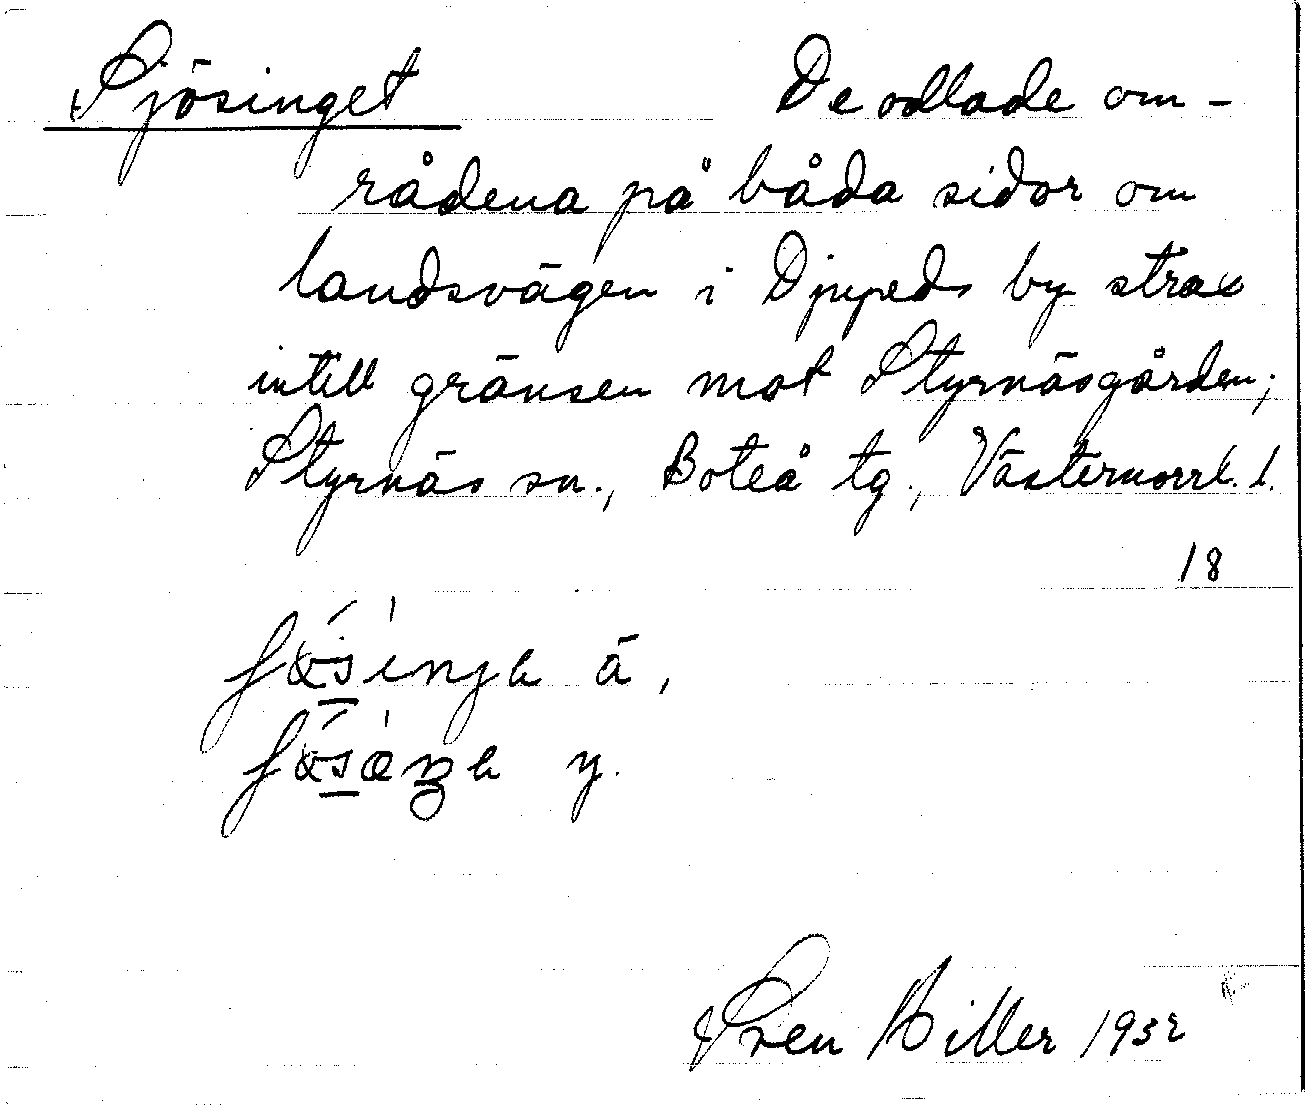 Sjösinget De odlade om-
rådena på båda sidor om
landsvägen i Djupeds by strax
intill gränsen mot Styrnäsgården;
Styrnäs sn., Boteå tg., Västernorrl. l.
18
ä,
y.
Sven Hiller 1932